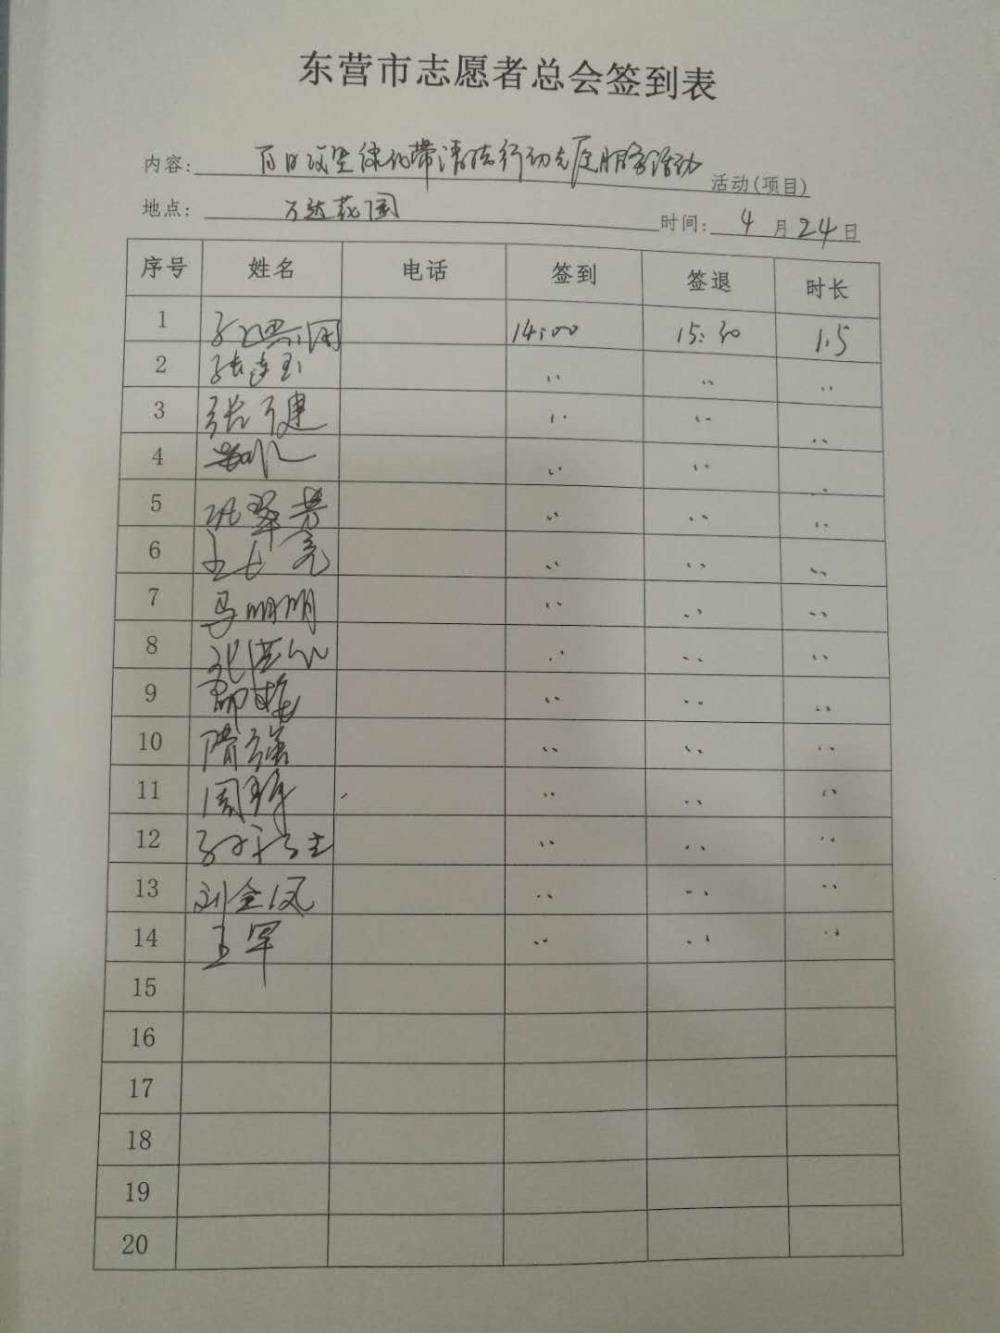 东营市志愿者总会签到表
内容: 百日攻坚绿化带清洁行动志愿服务活动 活动(项目)
地点: 万达花园 时间: 4月24日
序号 姓名 电话 签到 签退 时长
1 14:00 15:30 1.5
2 张连玉 〃 〃 〃
3 张可建 〃 〃 〃
4 〃 〃 〃
5 巩翠芳 〃 〃 〃
6 〃 〃 〃
7 马明明 〃 〃 〃
8 〃 〃 〃
9 〃 〃 〃
10 隋强 〃 〃 〃
11 〃 〃 〃
12 〃 〃 〃
13 刘金凤 〃 〃 〃
14 王军 〃 〃 〃
15
16
17
18
19
20